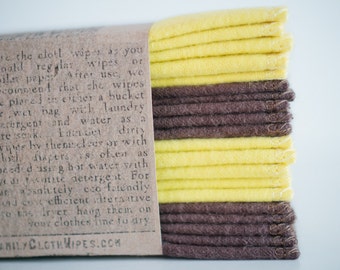 se the cloth wipes as you
would regular wipes or
toilet paper. After use, we
recommend that the wipes
be placed in either a bucket
or wet bag with laundry
detergent and water as a
Launder dirty
wipes by themselves or with
cloth diapers as often as
need d using hot water with
favourite detergent. For
absolutely eco friendly
and cost efficient alternative
to the dryer hang them on
your clothes line to dry
FAMILYCLOTHWIPES.COM